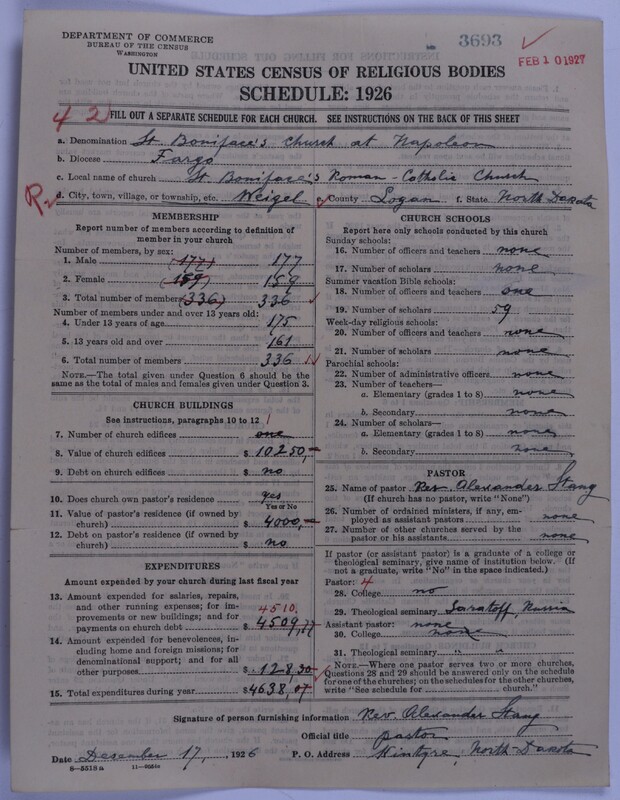 DEPARTMENT OF COMMERCE
BUREAU OF THE CENSUS
WASHINGTON
3693
FEB 10 1927
UNITED STATES CENSUS OF RELIGIOUS BODIES
SCHEDULE: 1926
42
FILL OUT A SEPARATE SCHEDULE FOR EACH CHURCH. SEE INSTRUCTIONS ON THE BACK OF THIS SHEET
a. Denomination St. Boniface's Church at Napoleon
b. Diocese Fargo
c. Local name of church St. Boniface's Roman-Catholic Church
R. d. City, town, village, or township, etc. Weigel e. County Logan f. State North Dakota
MEMBERSHIP
Report number of members according to definition of
member in your church
Number of members, by sex:
1. Male (177) 177
2. Female (159) 159
3. Total number of members (336) 336
Number of members under and over 13 years old:
4. Under 13 years of age 175
5. 13 years old and over 161
6. Total number of members 336
NOTE.—The total given under Question 6 should be
same as the total of males and females given under Question 3.
CHURCH BUILDINGS
See instructions, paragraphs 10 to 12
7. Number of church edifices one 1
8. Value of church edifices $ 10250,—
9. Debt on church edifices $ no
10. Does church own pastor's residence yes
Yes or No
11. Value of pastor's residence (if owned by
church) $ 4000,—
12. Debt on pastor's residence (if owned by
church) $ no
EXPENDITURES
Amount expended by your church during last fiscal year
13. Amount expended for salaries, repairs,
and other running expenses; for im-
provements or new buildings; and for
payments on church debt 4510. $ 4509,77
14. Amount expended for benevolences, in-
cluding home and foreign missions; for
denominational support; and for all
other purposes $ 128,30
15. Total expenditures during year $ 4638,07
CHURCH SCHOOLS
Report here only schools conducted by this church
Sunday schools:
16. Number of officers and teachers none
17. Number of scholars none
Summer vacation Bible schools:
18. Number of officers and teachers one
19. Number of scholars 59
Week-day religious schools:
20. Number of officers and teachers none
21. Number of scholars none
Parochial schools:
22. Number of administrative officers none
23. Number of teachers—
a. Elementary (grades 1 to 8) none
b. Secondary none
24. Number of scholars—
a. Elementary (grades 1 to 8) none
b. Secondary none
PASTOR
25. Name of pastor Rev. Alexander Stang
(If church has no pastor, write "None")
26. Number of ordained ministers, if any, em-
ployed as assistant pastors none
27. Number of other churches served by the
pastor or his assistants none
If pastor (or assistant pastor) is a graduate of a college or
theological seminary, give name of institution below. (If
not a graduate, write "No" in the space indicated.)
Pastor: 4
28. College no
29. Theological seminary Saratoff, Russia
Assistant pastor: none
30. College none
31. Theological seminary " "
NOTE.—Where one pastor serves two or more churches,
Questions 28 and 29 should be answered only on the schedule
for one of the churches; on the schedules for the other churches,
write "See schedule for church."
Signature of person furnishing information Rev. Alexander Stang
Official title pastor
Date December 17, 1926 P. O. Address Wintyre, North-Dakota
8—5518 a